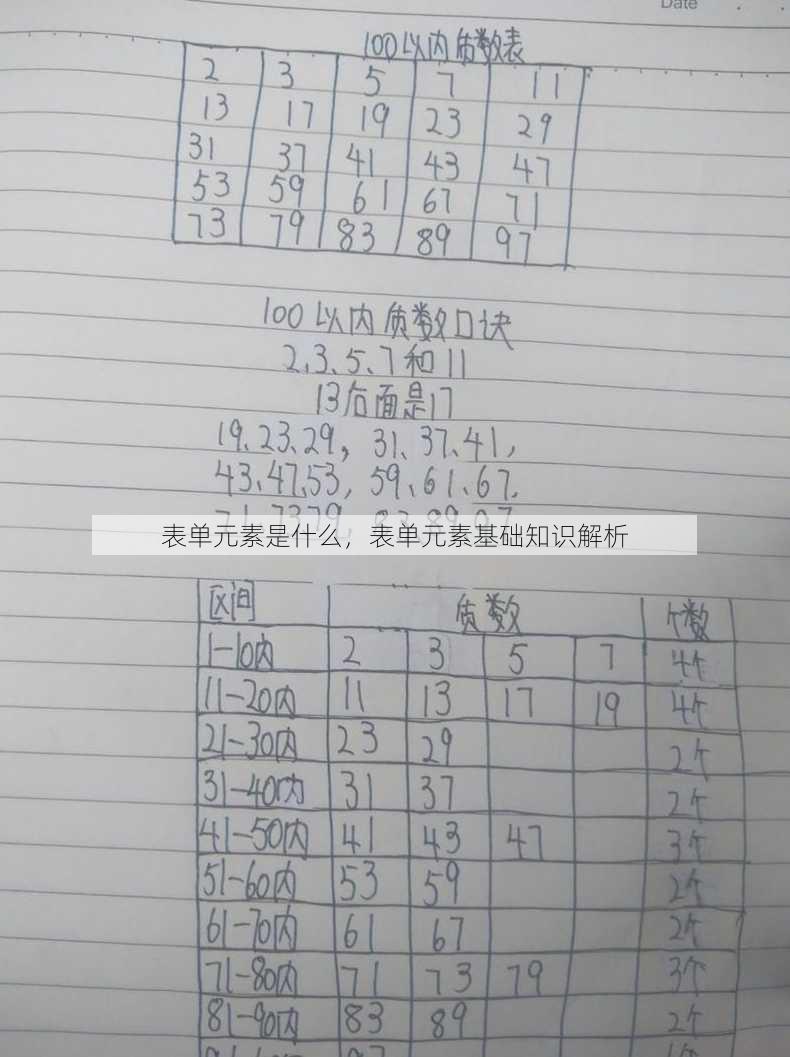 Date
100以内质数表
2 3 5 7 11
13 17 19 23 29
31 37 41 43 47
53 59 61 67 71
73 79 83 89 97
100以内质数口诀
2、3、5、7和11
13后面是17
19、23、29，31、37、41，
43、47、53，59、61、67、
表单元素是什么，表单元素基础知识解析
区间 质数 个数
1-10内 2 3 5 7 4个
11-20内 11 13 17 19 4个
21-30内 23 29 2个
31-40内 31 37 2个
41-50内 41 43 47 3个
51-60内 53 59 2个
61-70内 61 67 2个
71-80内 71 73 79 3个
81-90内 83 89 2个